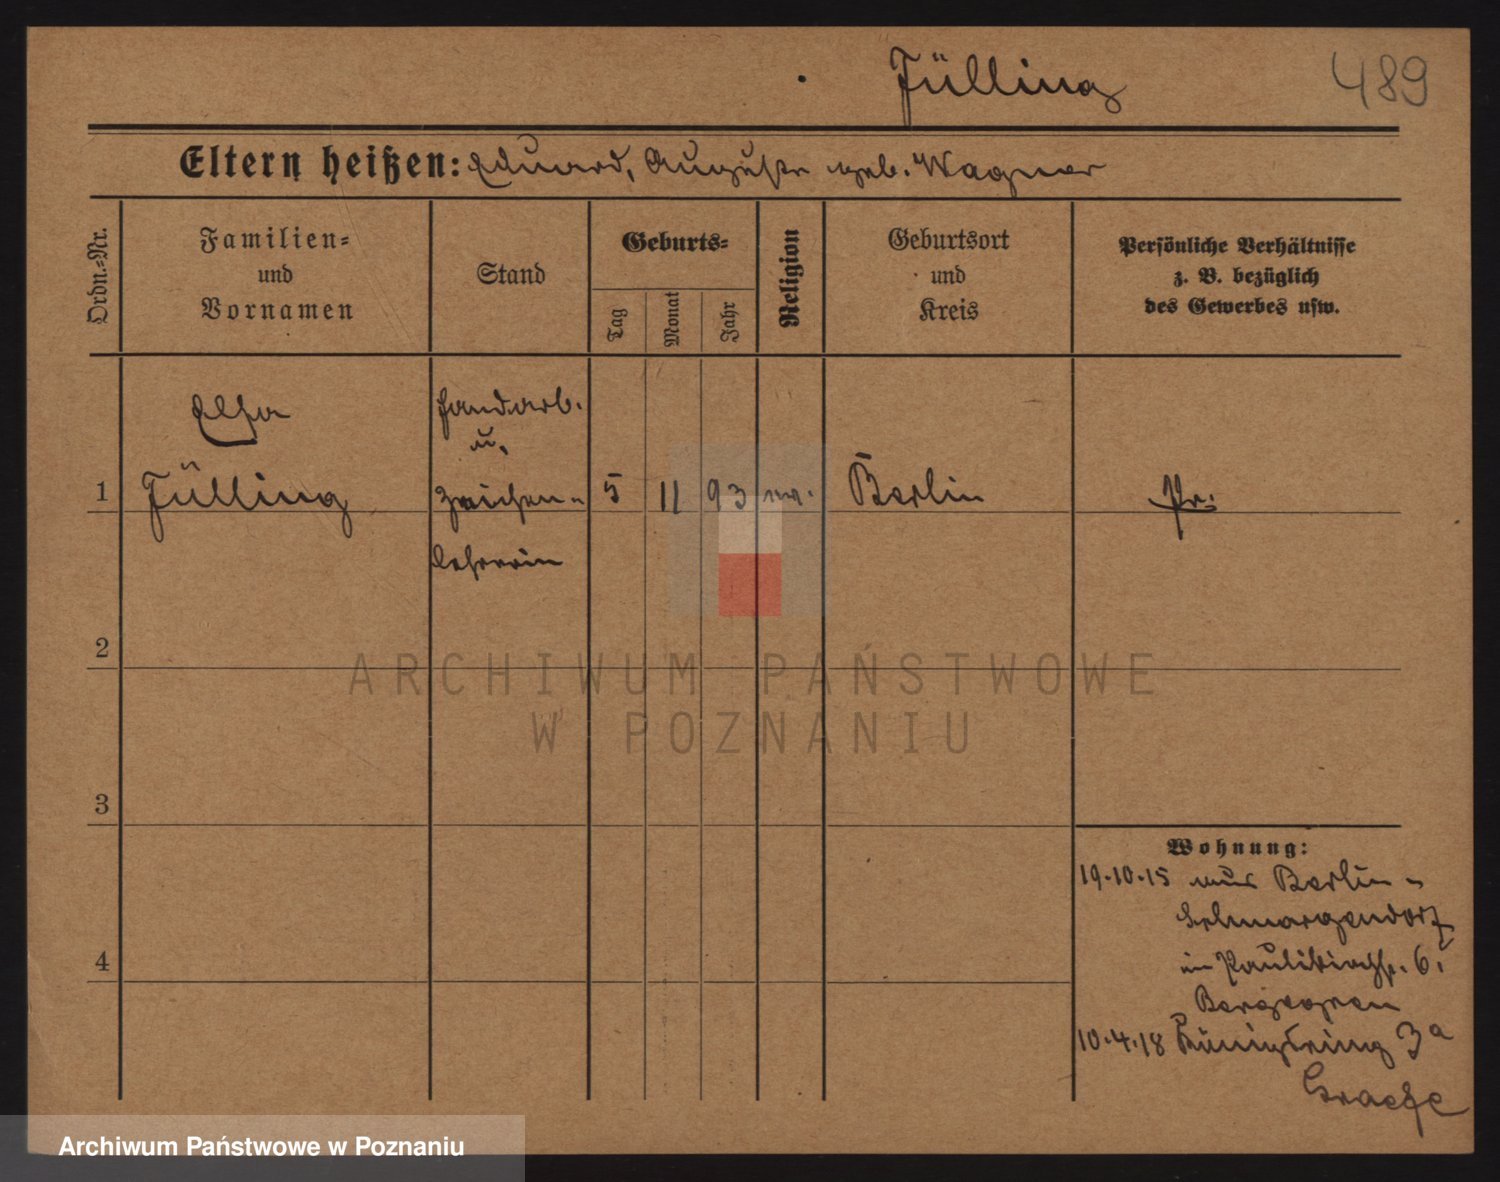 Jülling 489
Eltern heißen: Eduard, Auguste geb. Wagner
Ordn.=Nr.
Familien=
und
Vornamen
Stand
Geburts=
Tag
Monat
Jahr
Religion
Geburtsort
und
Kreis
Persönliche Verhältnisse
z. B. bezüglich
des Gewerbes usw.
Elsa
Handarb.
u.
1 Jülling Zeichen= 5 11 93 ev. Berlin Pr:
lehrerin
2
3
4
Wohnung:
19.10.15 aus Berlin=
Schmargendorf
in Paulikirchstr. 6.
10.4.18 Königsring 3a
Graefe
ARCHIWUM PAŃSTWOWE
W POZNANIU
Archiwum Państwowe w Poznaniu